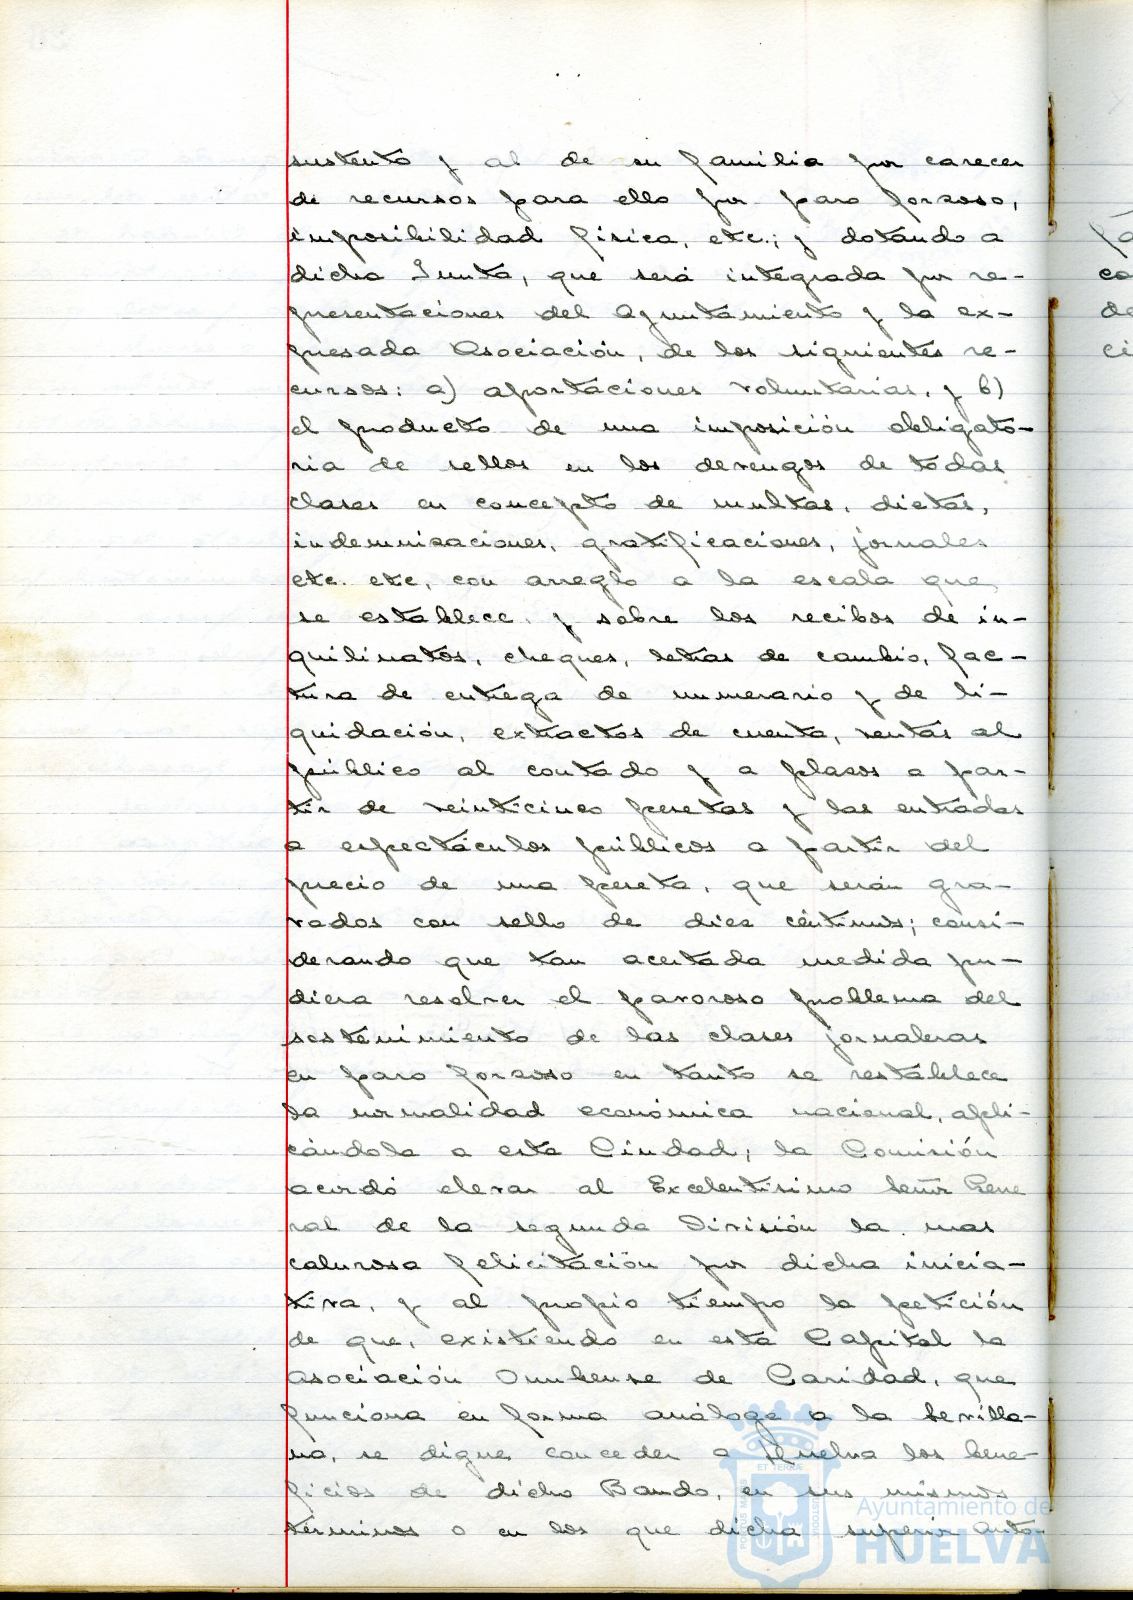 sustento y al de su familia por carecer
de recursos para ello por paro forzoso,
imposibilidad física, etc.; y dotando a
dicha Junta, que será integrada por re-
presentaciones del Ayuntamiento y la ex-
presada Asociación, de los siguientes re-
cursos: a) aportaciones voluntarias, y b)
el producto de una imposición obligato-
ria de sellos en los devengos de todas
clases en concepto de multas, dietas,
indemnizaciones, gratificaciones, jornales
etc. etc, con arreglo a la escala que
se establece, y sobre los recibos de in-
quilinatos, cheques, letras de cambio, fac-
tura de entrega de numerario y de li-
quidación, extractos de cuenta, ventas al
público al contado y a plazos a par-
tir de veinticinco pesetas y las entradas
a espectáculos públicos a partir del
precio de una peseta, que serán gra-
vados con sello de diez céntimos; consi-
derando que tan acertada medida pu-
diera resolver el pavoroso problema del
sostenimiento de las clases jornaleras
en paro forzoso en tanto se restablece
la normalidad económica nacional, apli-
cándola a esta Ciudad; la Comisión
acordó elevar al Excelentísimo Señor Gene
ral de la segunda División la mas
calurosa felicitación por dicha inicia-
tiva, y al propio tiempo la petición
de que, existiendo en esta Capital la
Asociación Onubense de Caridad, que
funciona en forma análoga a la Sevilla-
na, se digne conceder a Huelva los bene-
ficios de dicho Bando, en sus mismos
términos o en los que dicha superior Auto-
Ayuntamiento de
HUELVA